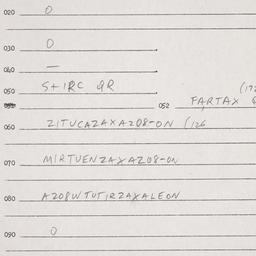 020 0
030 0
040 —
050 S+IRC QR (172
052 FARTAX 6
060 ZITUCAZAXAZ08-ON (126
070 MIRTUENZAXAZ08-ON
080 AZ08WTUTIRZAXALEON
090 0